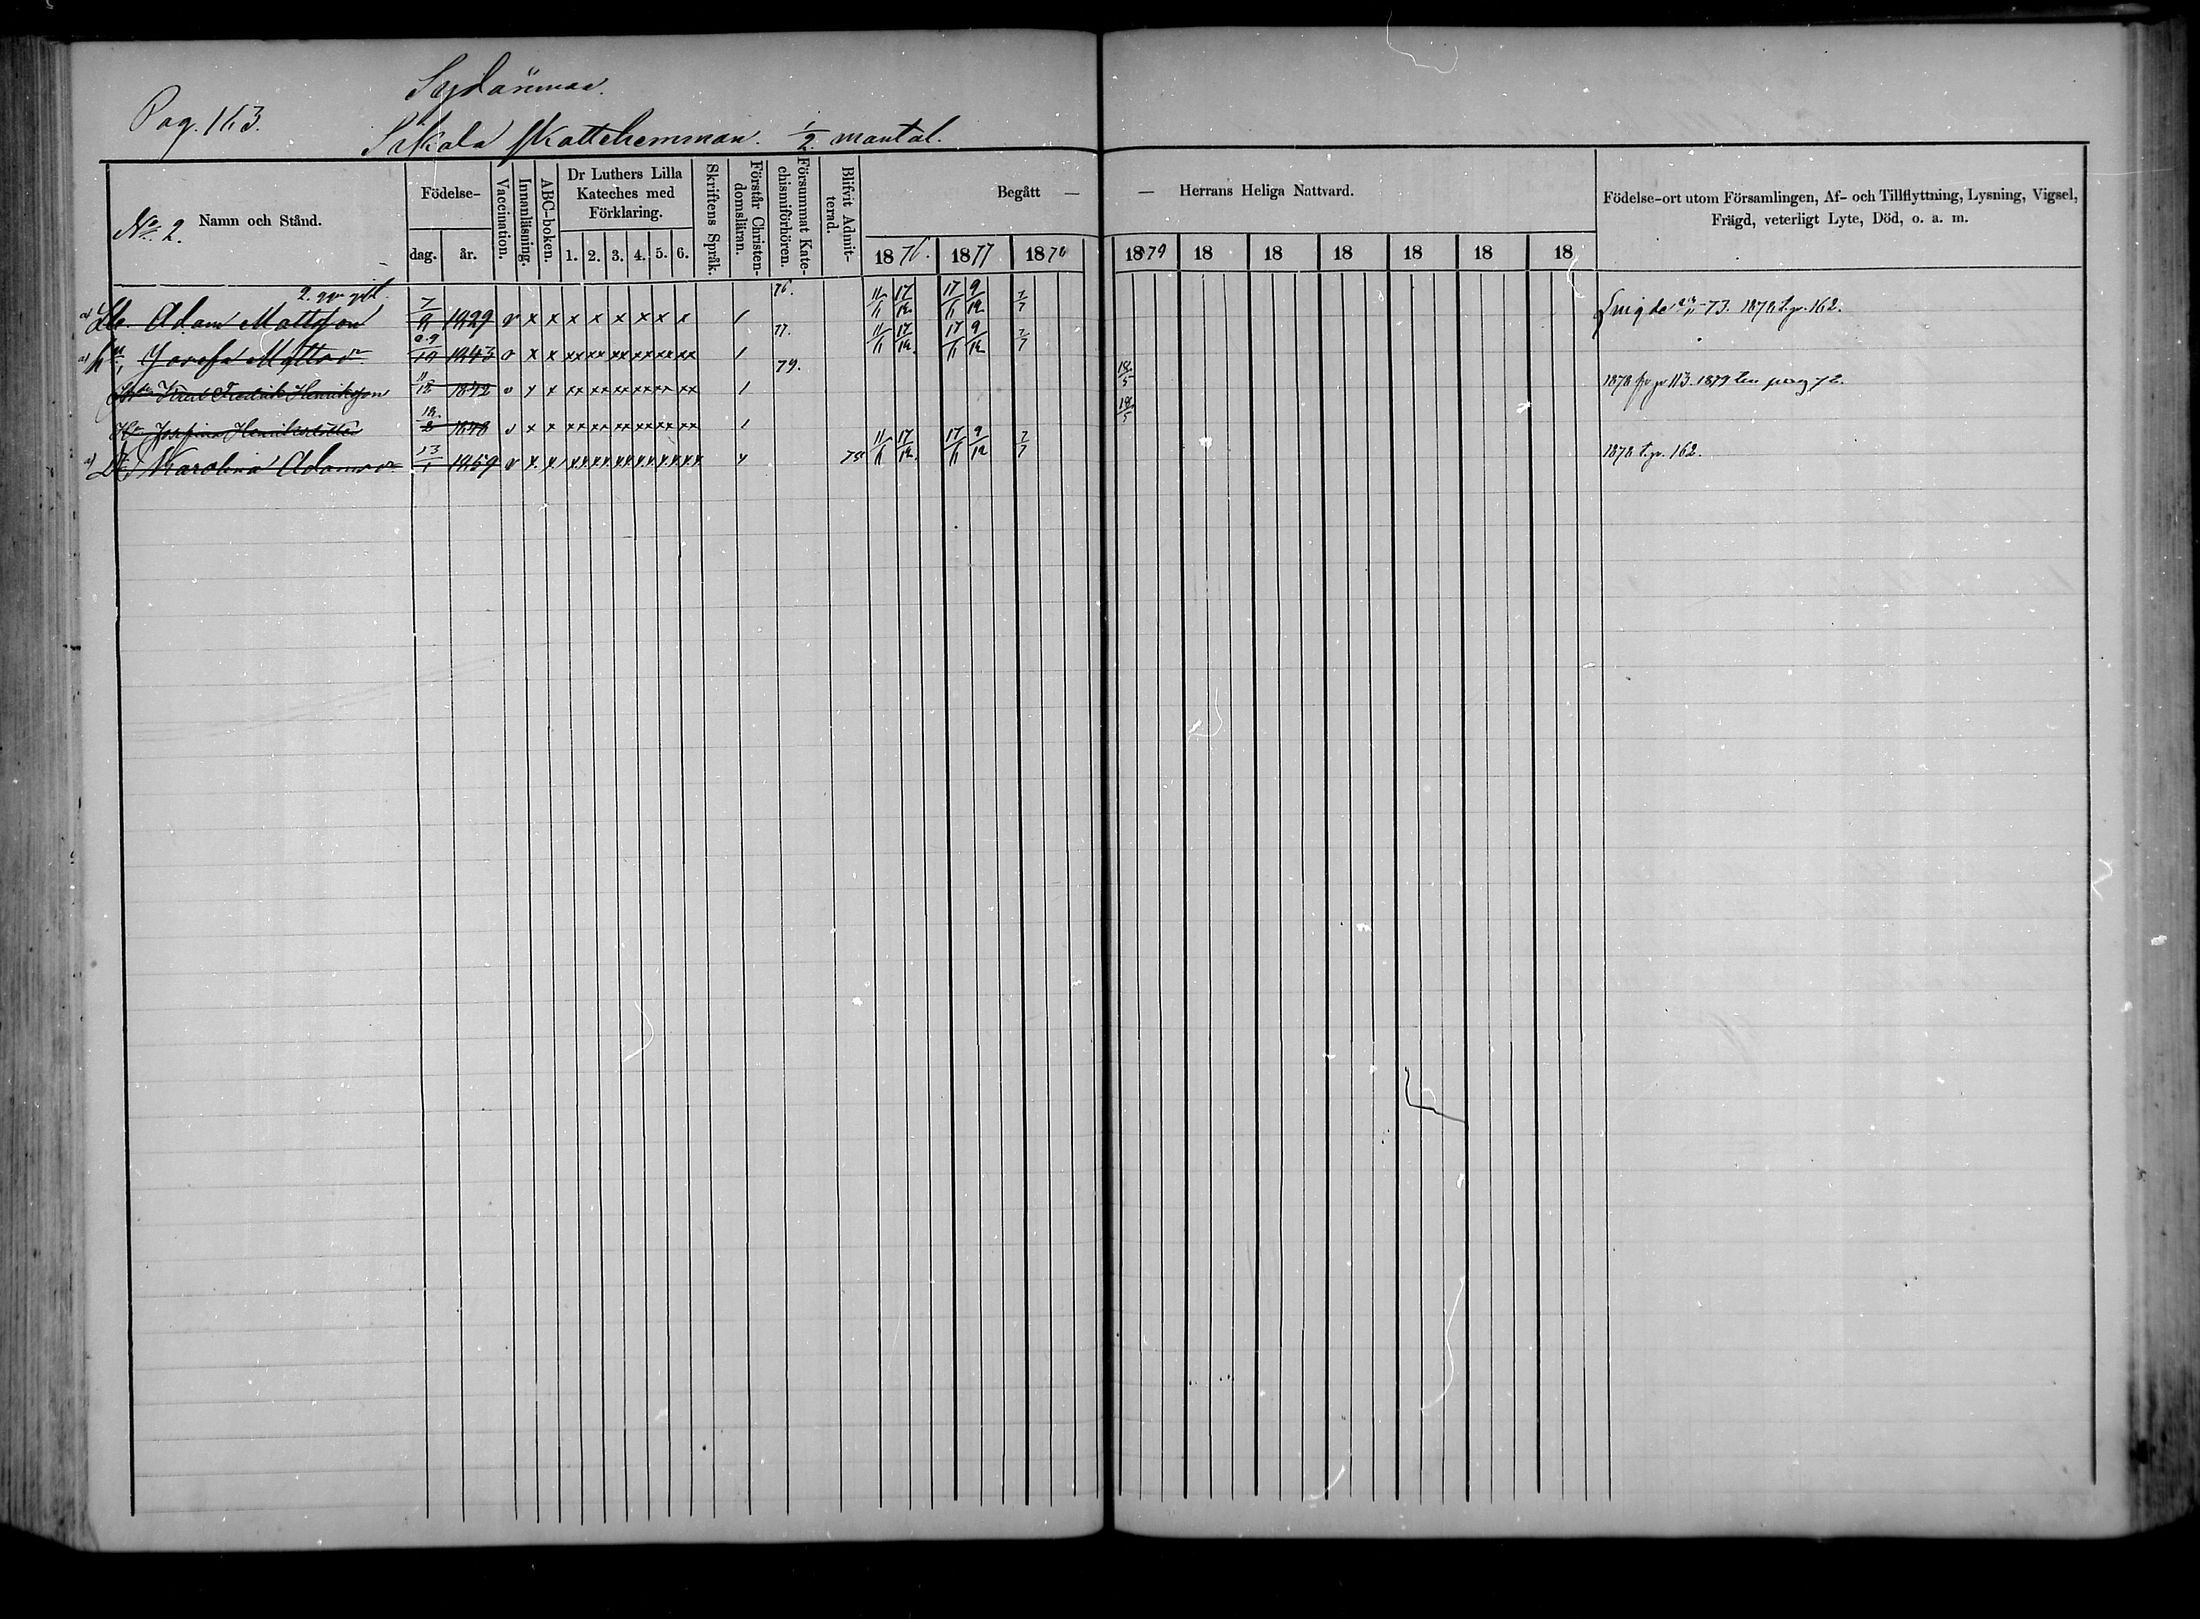 Pag. 163.
Sydänmaa.
Sikala Skattehemman. 1/2 mantal.
No. 2. Namn och Stånd.
Födelse-
dag. år.
Vaccination.
Innanläsning.
ABC-boken.
Dr Luthers Lilla
Kateches med
Förklaring.
1. 2. 3. 4. 5. 6.
Skriftens Språk.
Förstår Christen-
domsläran.
Försummat Kate-
chismiförhören.
Blifvit Admit-
terad.
Begått — — Herrans Heliga Nattvard.
1876. 1877 1878 1879 18 18 18 18 18 18
Födelse-ort utom Församlingen, Af- och Tillflyttning, Lysning, Vigsel,
Frägd, veterligt Lyte, Död, o. a. m.
2. ggr gift.
Adam Mattsson 7/9 1829 v x x x x x x x x / 76. 11/11 17/12 17/11 9/12 7/7 73. 1878 t. p. 162.
Josefa Mattsdr 1843 v x x xx xx xx xx xx xx / 77. 11/11 17/12 17/11 9/12 7/7
Karl Fredrik Henriksson 11/12 1842 v x x xx xx xx xx xx xx / 79. 18/5 1878 fr p. 113. 1879 till pag 72.
Hu Josefina Henriksdotter 12/8 1848 v x x xx xx xx xx xx xx / 18/5
Dr Karolina Adamsdr 13/1 1859 v x x xx xx xx xx xx xx x 75 11/11 17/12 17/11 9/12 7/7 1878 t. p. 162.